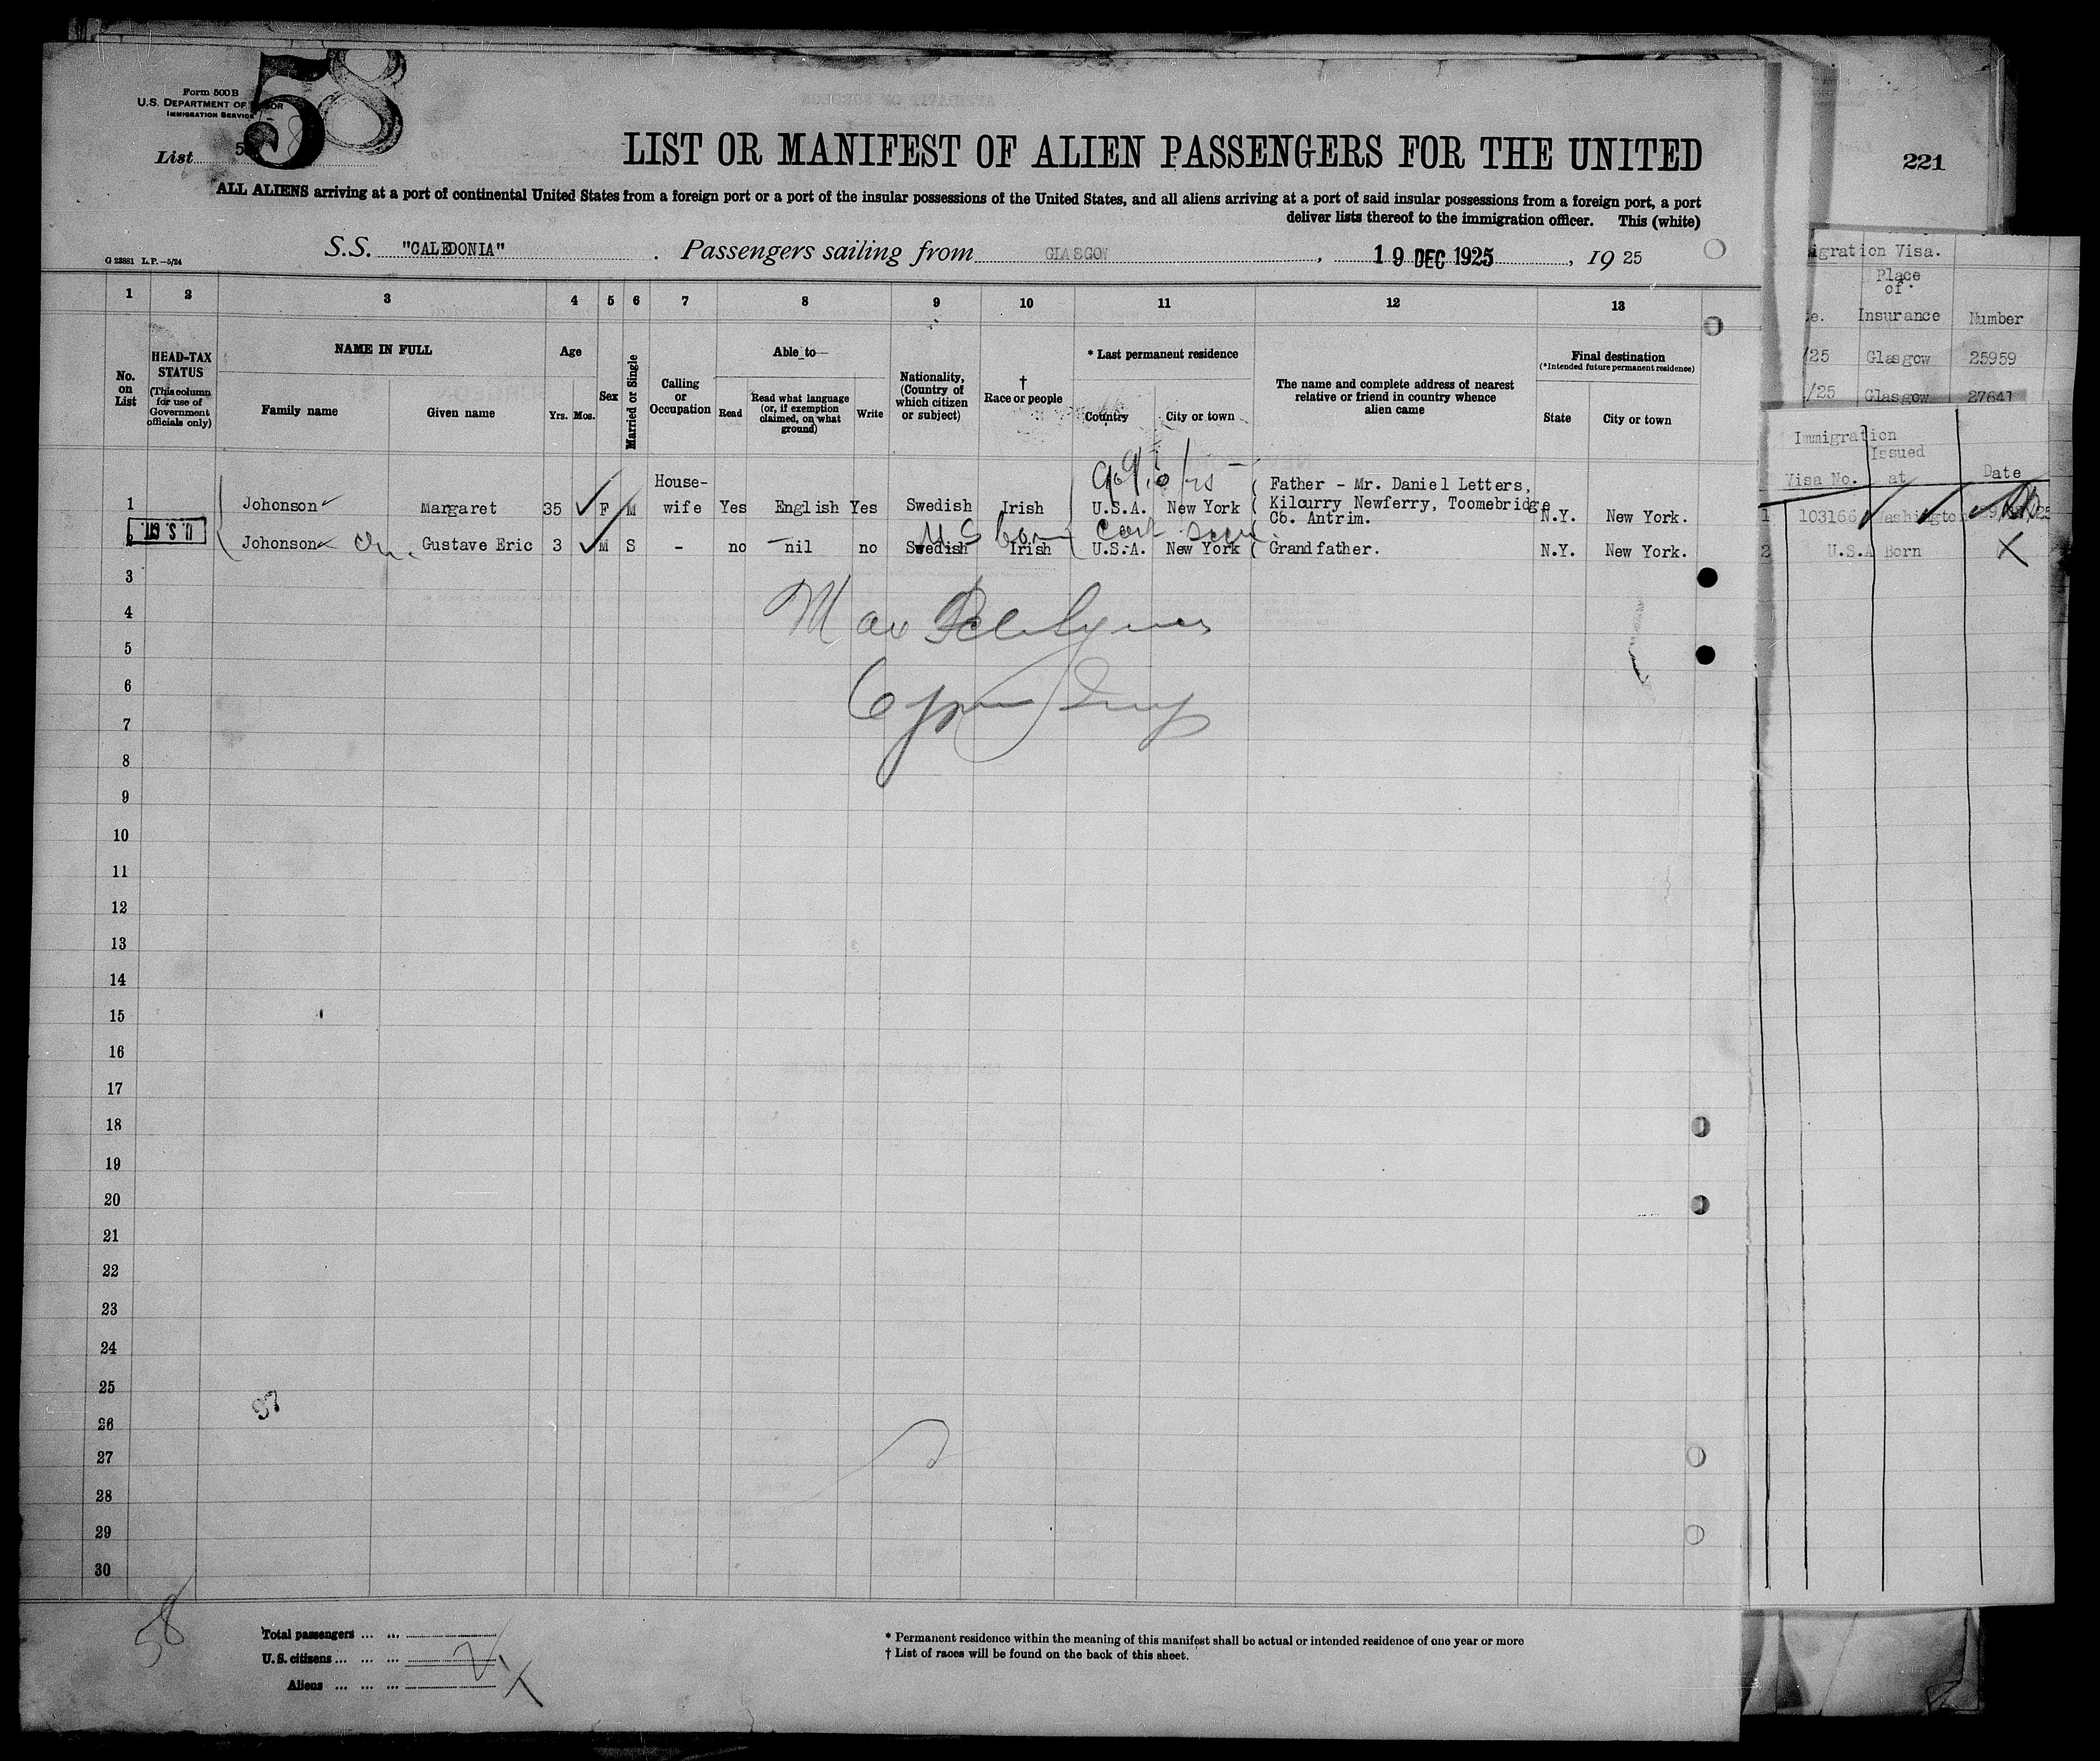 58
Form 500 B
U.S. DEPARTMENT OF LABOR
IMMIGRATION SERVICE
List
LIST OR MANIFEST OF ALIEN PASSENGERS FOR THE UNITED
221
ALL ALIENS arriving at a port of continental United States from a foreign port or a port of the insular possessions of the United States, and all aliens arriving at a port of said insular possessions from a foreign port, a port
deliver lists thereof to the immigration officer. This (white)
S.S. "CALEDONIA" . Passengers sailing from GLASGOW , 19 DEC 1925 , 19 25
G 23881 L.P.—5/24
1 2 3 4 5 6 7 8 9 10 11 12 13
No. on List
HEAD-TAX STATUS
(This column for use of Government officials only)
NAME IN FULL
Family name
Given name
Age
Yrs. Mos.
Sex
Married or Single
Calling or Occupation
Able to—
Read
Read what language (or, if exemption claimed, on what ground)
Write
Nationality, (Country of which citizen or subject)
† Race or people
* Last permanent residence
Country
City or town
The name and complete address of nearest relative or friend in country whence alien came
Final destination
(*Intended future permanent residence)
State
City or town
1 Johonson Margaret 35 F M House-wife Yes English Yes Swedish Irish U.S.A. New York Father - Mr. Daniel Letters, Kilcurry Newferry, Toomebridge Co. Antrim. N.Y. New York.
U.S. born
U.S. CIT.
Johonson Gustave Eric 3 M S - no nil no Swedish Irish U.S.A. New York Grandfather. N.Y. New York.
3
4
5
6
7
8
9
10
11
12
13
14
15
16
17
18
19
20
21
22
23
24
25
26
27
28
29
30
58
Total passengers ... ...
U.S. citizens ... ... ...
Aliens ... ... ...
* Permanent residence within the meaning of this manifest shall be actual or intended residence of one year or more
† List of races will be found on the back of this sheet.
igration Visa.
Place of
Insurance Number
/25 Glasgow 25959
/25 Glasgow 27641
Immigration
Issued
Visa No. at Date
1 103166 Washington
2 U.S.A Born X